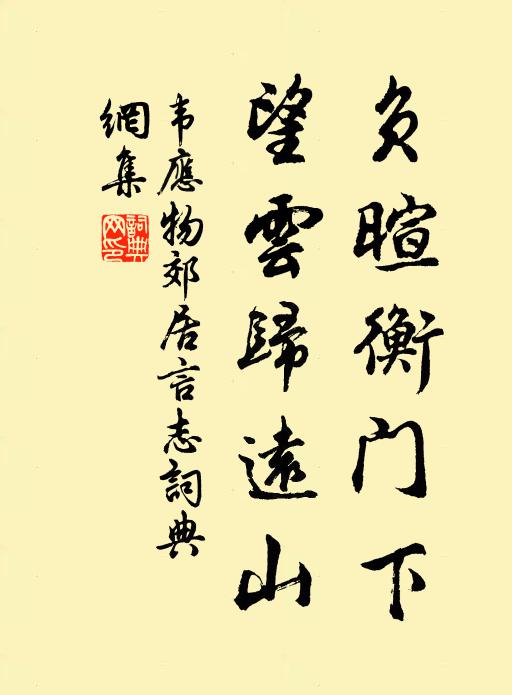 负暄衡门下
望雲歸遠山
韦應物郊居言志詞典
網集
詞典
网印